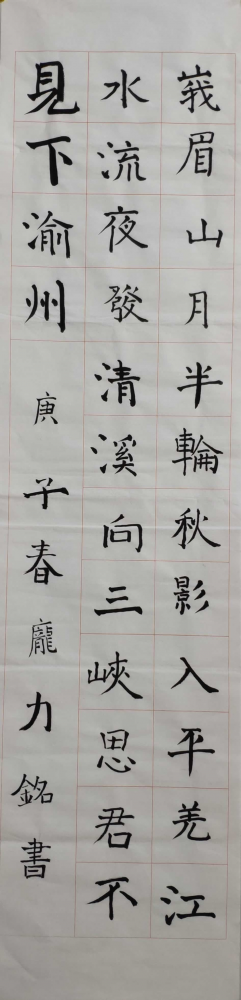 峩眉山月半輪秋影入平羌江
水流夜發清溪向三峽思君不
見下渝州庚子春龐力銘書